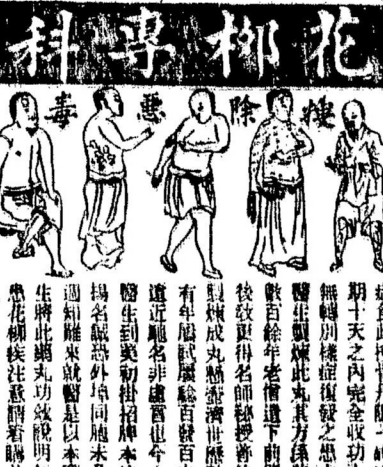 花柳專科
除惡毒
期十天之內完全收功
無轉別樣症復發之患
醫生製煉此丸其方係
數百餘年老僧遺下前
後致更得名師秘授普
製煉成丸懸壺濟世歷
有年屢試屢驗百發百
遠近馳名非虛也今
醫生到美初掛招牌本
揚名誠恐外埠同胞未
週知難來就醫是以本
生將此丸功效說明
患花柳疾注意請看購